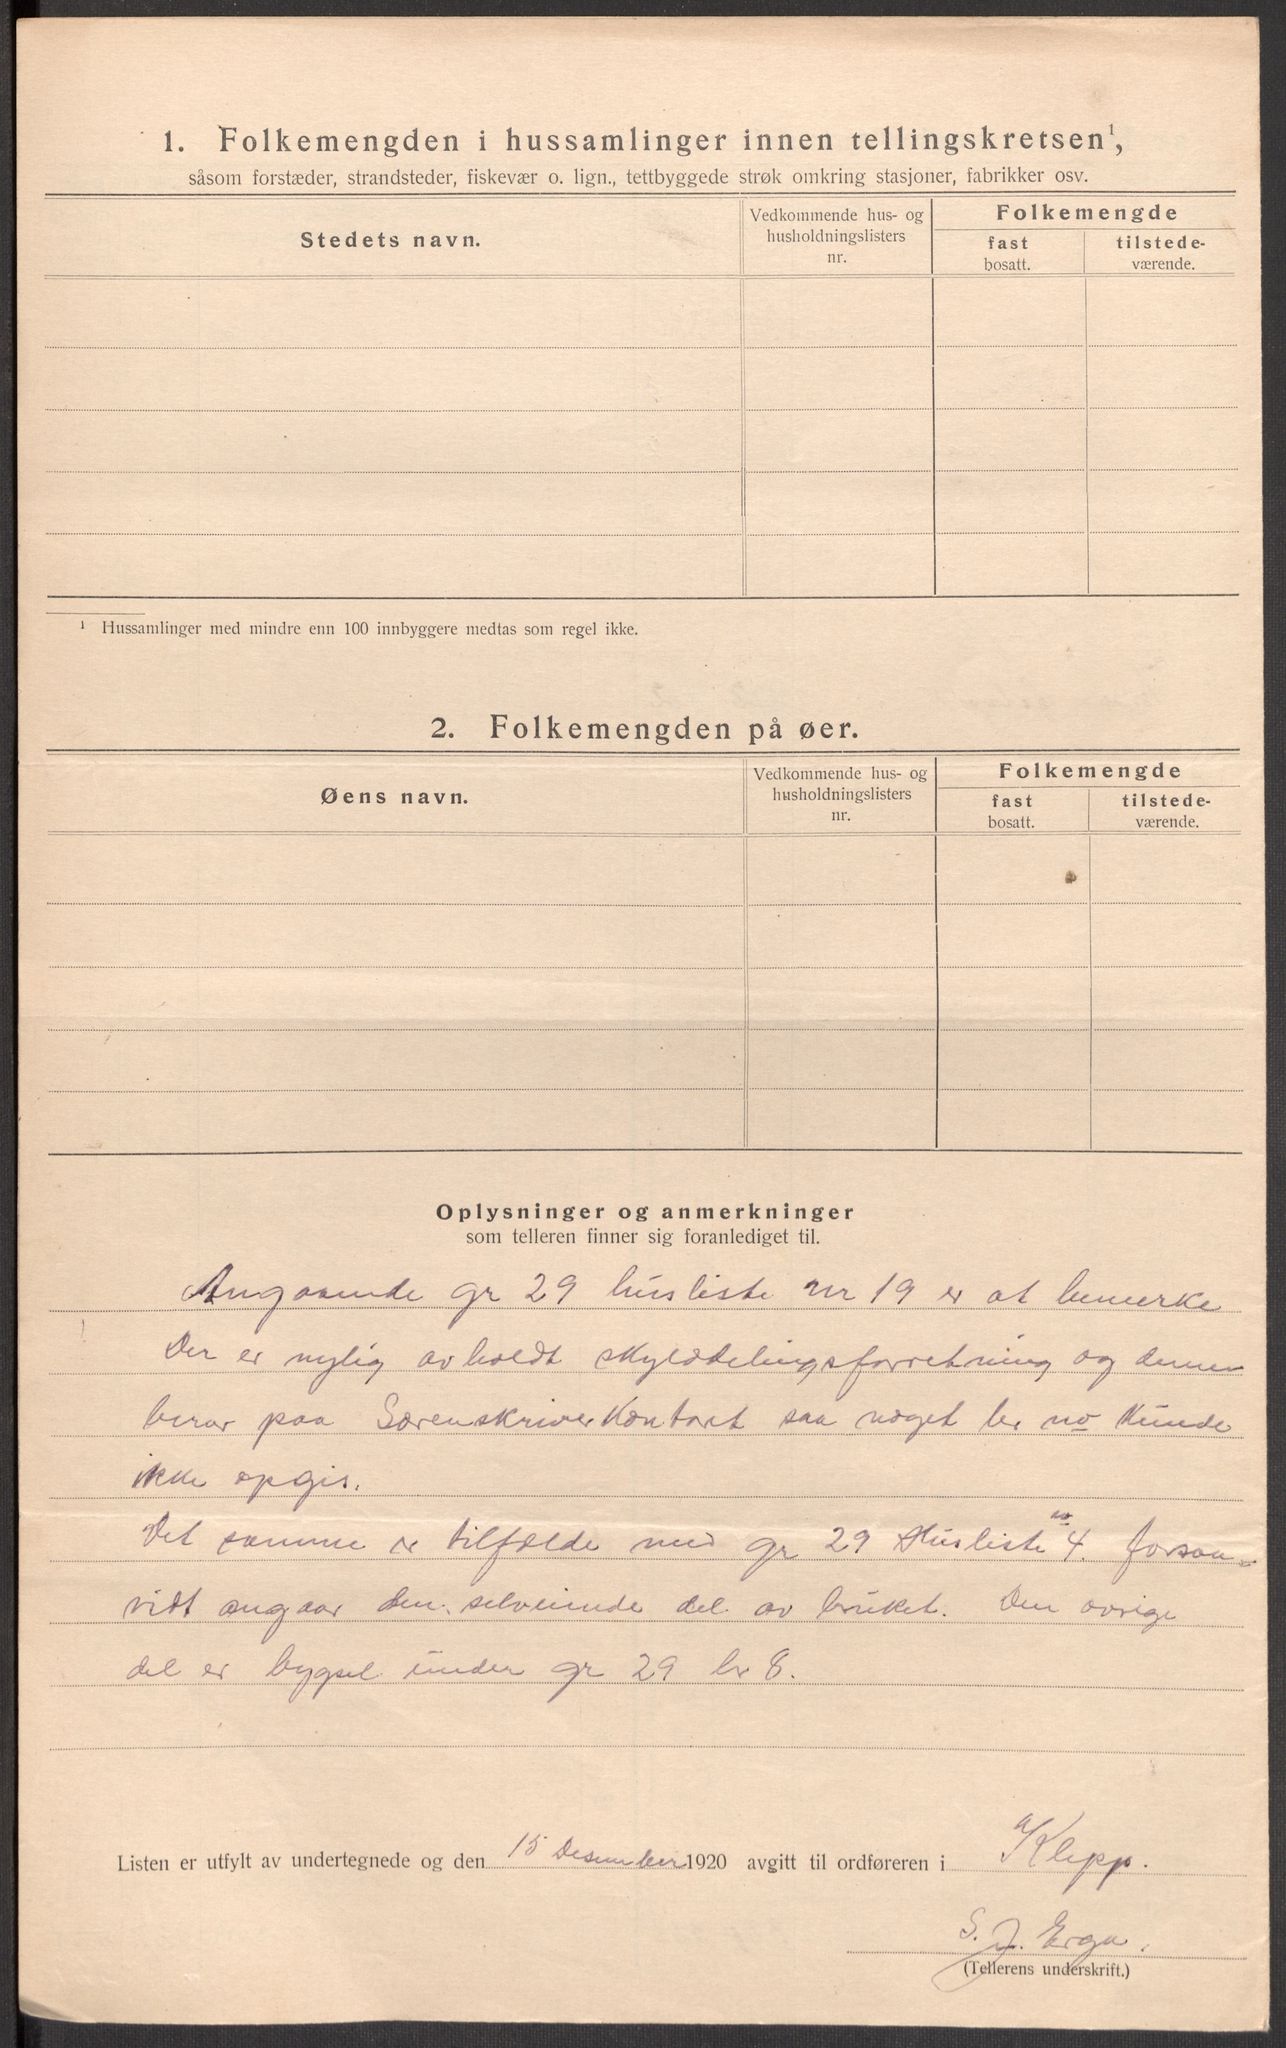 1. Folkemengden i hussamlinger innen tellingskretsen¹,
såsom forstæder, strandsteder, fiskevær o. lign., tettbyggede strøk omkring stasjoner, fabrikker osv.
Stedets navn.
Vedkommende hus- og
husholdningslisters
nr.
Folkemengde
fast
bosatt.
tilstede-
værende.
¹ Hussamlinger med mindre enn 100 innbyggere medtas som regel ikke.
2. Folkemengden på øer.
Øens navn.
Vedkommende hus- og
husholdningslisters
nr.
Folkemengde
fast
bosatt.
tilstede-
værende.
Oplysninger og anmerkninger
som telleren finner sig foranlediget til.
Angaaende gr 29 husliste nr 19 er at bemerke
Der er nylig avholdt skylddelingsforretning og denne
beror paa Sorenskriverkontort saa noget br no kunde
ikke opgis.
Det samme er tilfælde med gr 29 Husliste no 4. forsaa-
vidt angaar den selveiende del av bruket. Den øvrige
del er bygsel under gr 29 br 8.
Listen er utfylt av undertegnede og den 15 Desember 1920 avgitt til ordføreren i Klepp.
S. J. Erga.
(Tellerens underskrift.)